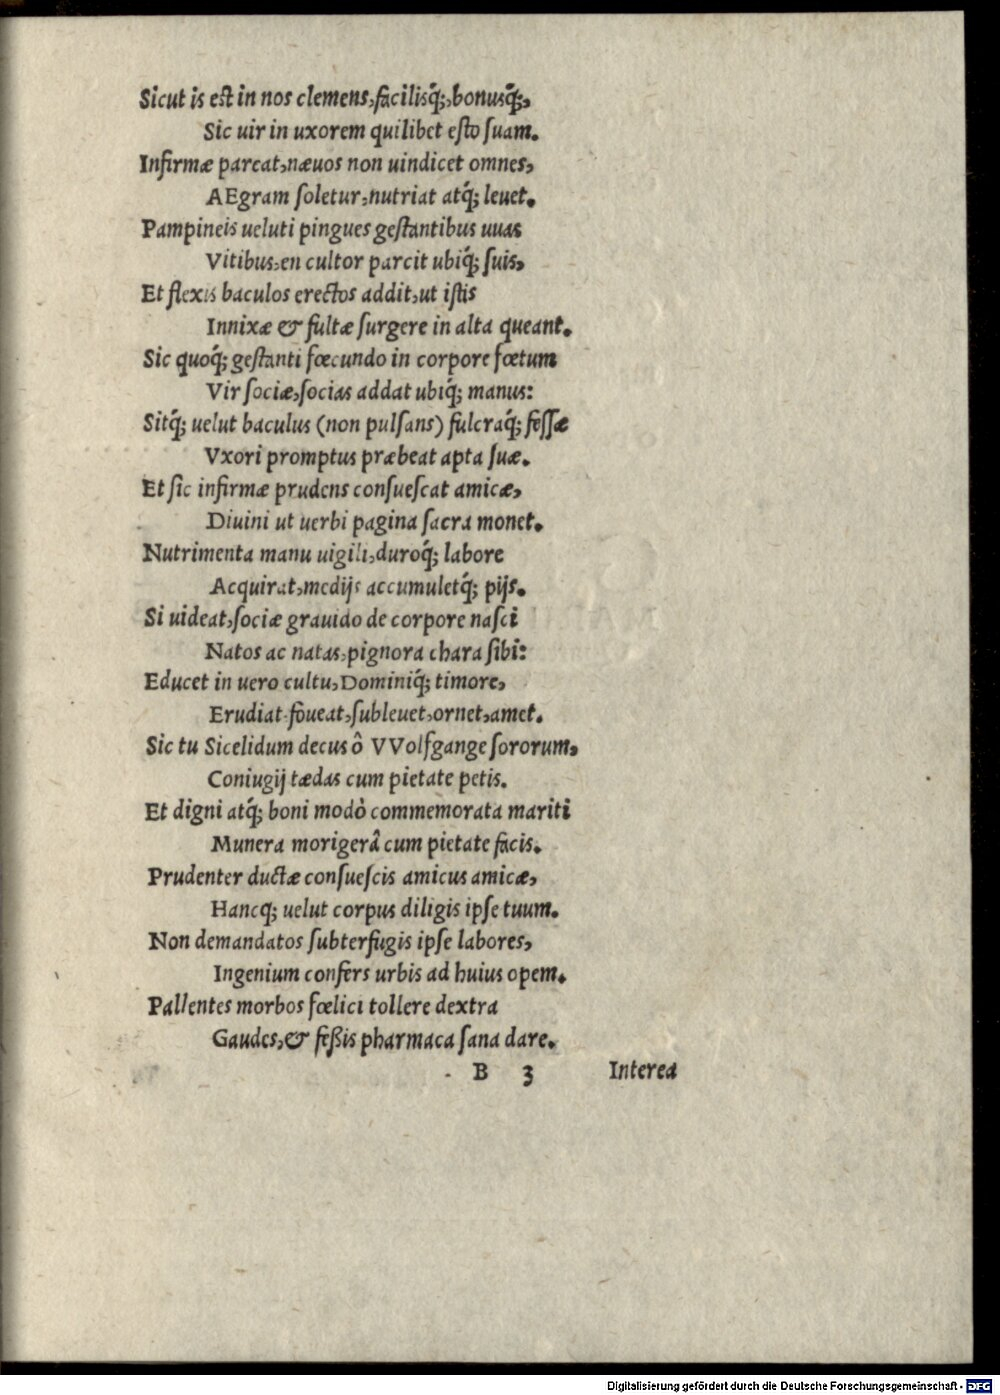 Sicut is eſt in nos clemens, facilisq́;, bonusq́;,
Sic uir in uxorem quilibet eſto ſuam.
Infirmæ parcat, næuos non uindicet omnes,
AEgram ſoletur, nutriat atq́; leuet.
Pampineis ueluti pingues geſtantibus uuas
Vitibus, en cultor parcit ubiq́; ſuis,
Et flexis baculos erectos addit, ut iſtis
Innixæ & fultæ ſurgere in alta queant.
Sic quoq́; geſtanti fœcundo in corpore fœtum
Vir ſociæ, ſocias addat ubiq́; manus:
Sitq́; uelut baculus (non pulſans) fulcraq́; feſſæ
Vxori promptus præbeat apta ſuæ.
Et ſic infirmæ prudens conſueſcat amicæ,
Diuini ut uerbi pagina ſacra monet.
Nutrimenta manu uigili, duroq́; labore
Acquirat, medijs accumuletq́; pijs.
Si uideat, ſociæ grauido de corpore naſci
Natos ac natas, pignora chara ſibi:
Educet in uero cultu, Dominiq́; timore,
Erudiat, foueat, ſubleuet, ornet, amet.
Sic tu Sicelidum decus ô VVolfgange ſororum,
Coniugij tædas cum pietate petis.
Et digni atq́; boni modò commemorata mariti
Munera morigerâ cum pietate facis.
Prudenter ductæ conſueſcis amicus amicæ,
Hancq; uelut corpus diligis ipſe tuum.
Non demandatos ſubterfugis ipſe labores,
Ingenium confers urbis ad huius opem.
Pallentes morbos fœlici tollere dextra
Gaudes, & feßis pharmaca ſana dare.
B 3 Interea
Digitalisierung gefördert durch die Deutsche Forschungsgemeinschaft - DFG